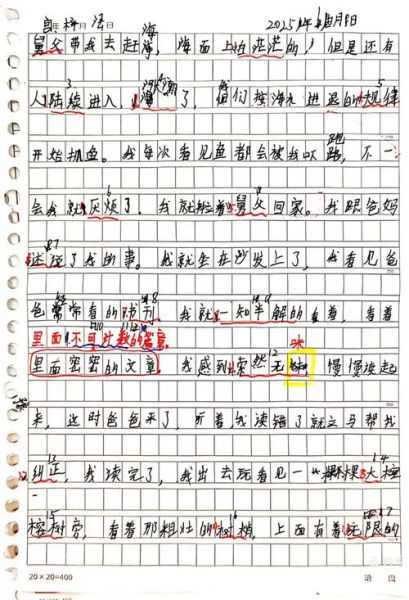 海 2025年 月 日
舅父带我去赶海，海面上白茫茫的，但是还有
人陆续进入，了，我们按海水进退的规律
开始抓鱼。我每次看见鱼都会被我吓跑，不一
会我就厌烦了。我就拉着舅父回家。我跟爸妈
述说了我的事。我就坐在沙发上了，我看见爸
爸常常看的书刊，我就一知半解的看着，看着
里面不可计数的篇章。
里面密密的文章。我感到索然无味，慢慢读起
来，这时爸爸来了，听着我读错了就立马帮我
纠正，我读完了，我出去玩看见一棵大
榕树旁，看着那粗壮的树梢，上面有着无限的
20×20=400